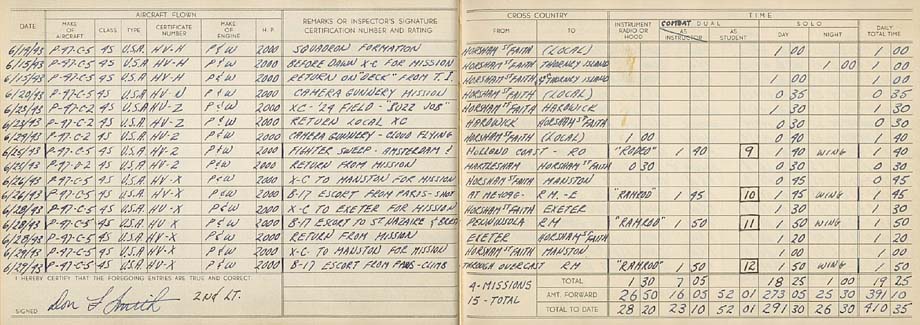 AIRCRAFT FLOWN
CROSS COUNTRY
TIME
DATE MAKE OF AIRCRAFT CLASS TYPE CERTIFICATE NUMBER MAKE OF ENGINE H. P. REMARKS OR INSPECTOR'S SIGNATURE CERTIFICATION NUMBER AND RATING FROM TO INSTRUMENT RADIO OR HOOD COMBAT DUAL AS INSTRUCTOR AS STUDENT SOLO DAY NIGHT TOTAL TIME
6/14/43 P-47-C-5 45 U.S.A. HV-H P & W 2000 SQUADRON FORMATION HORSHAM ST FAITH (LOCAL) 1 00 1 00
6/15/43 P-47-C-5 45 U.S.A. HV-H P & W 2000 BEFORE DAWN X-C FOR MISSION HORSHAM ST FAITH THORNEY ISLAND 1 00 1 00
6/15/43 P-47-C-5 45 U.S.A. HV-H P & W 2000 RETURN ON "DECK" FROM T.I. HORSHAM ST FAITH THORNEY ISLAND 1 00 1 00
6/20/43 P-47-C-5 45 U.S.A. HV-N P & W 2000 CAMERA GUNNERY MISSION HORSHAM ST FAITH (LOCAL) 0 35 0 35
6/23/43 P-47-C-2 45 U.S.A. HV-Z P & W 2000 XC - '24 FIELD - "BUZZ JOB" HORSHAM ST FAITH HARDWICK 1 30 1 30
6/23/43 P-47-C-2 45 U.S.A. HV-Z P & W 2000 RETURN LOCAL XC HARDWICK HORSHAM ST FAITH 0 30 0 30
6/24/43 P-47-C-2 45 U.S.A. HV-Z P & W 2000 CAMERA GUNNERY - CLOUD FLYING HORSHAM ST FAITH (LOCAL) 1 00 0 40 1 40
6/25/43 P-47-C-5 45 U.S.A. P & W 2000 FIGHTER SWEEP - AMSTERDAM ! HOLLAND COAST - RO "RODEO" 1 40 9 1 40 WING 1 40
P-47-D-2 45 U.S.A. P & W 2000 RETURN FROM MISSION MARTLESHAM HORSHAM ST FAITH 0 30 0 30 0 30
6/26/43 P-47-C-5 45 U.S.A. HV-X P & W 2000 X-C TO MANSTON FOR MISSION HORSHAM ST FAITH MANSTON 0 45 0 45
6/26/43 P-47-C-5 45 U.S.A. HV-X P & W 2000 B-17 ESCORT FROM PARIS - R.M. - 2 "RAMROD" 1 45 10 1 45 WING 1 45
6/28/43 P-47-C-5 45 U.S.A. HV-X P & W 2000 X-C TO EXETER FOR MISSION HORSHAM ST FAITH EXETER 1 30 1 30
6/28/43 P-47-C-5 45 U.S.A. HV-X P & W 2000 B-17 ESCORT TO ST. NAZAIRE & BREST PENINSULA RM "RAMROD" 1 50 11 1 50 WING 1 50
6/28/43 P-47-C-5 45 U.S.A. HV-X P & W 2000 RETURN FROM MISSION EXETER HORSHAM ST FAITH 1 20 1 20
6/29/43 P-47-C-5 45 U.S.A. HV-X P & W 2000 X-C TO MANSTON FOR MISSION HORSHAM ST FAITH MANSTON 1 00 1 00
6/29/43 P-47-C-5 45 U.S.A. HV-X P & W 2000 B-17 ESCORT FROM PARIS - CLIMB THROUGH OVERCAST RM "RAMROD" 1 50 12 1 50 WING 1 50
I HEREBY CERTIFY THAT THE FOREGOING ENTRIES ARE TRUE AND CORRECT
SIGNED Don L Smith 2nd LT.
4-MISSIONS TOTAL 1 30 7 05 18 25 1 00 19 25
15-TOTAL AMT. FORWARD 26 50 16 05 52 01 273 05 25 30 391 10
TOTAL TO DATE 28 20 23 10 52 01 291 30 26 30 410 35